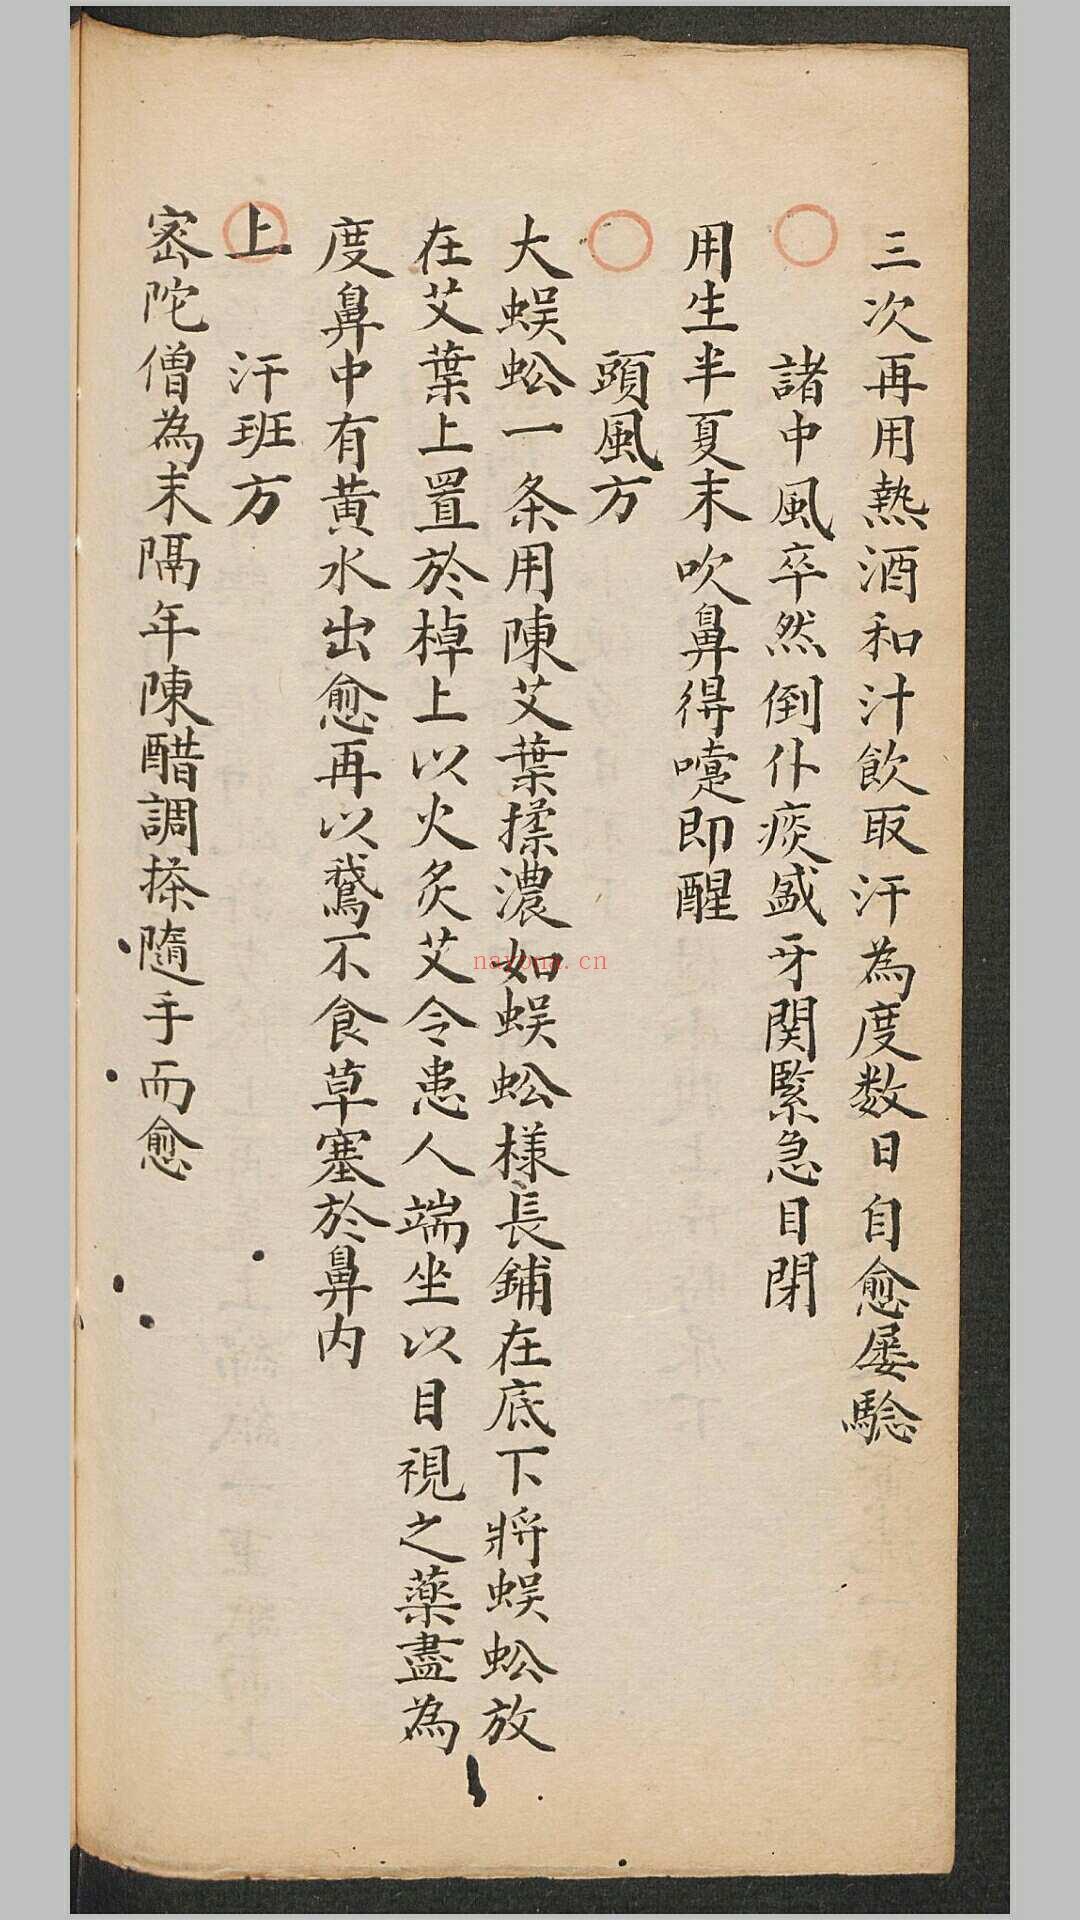 三次再用熱酒和汁飲取汗為度数日自愈屡騐
諸中風卒然倒仆痰盛牙関緊急目閉
用生半夏末吹鼻得嚏即醒
頭風方
大蜈蚣一条用陳艾葉揉濃如蜈蚣様長鋪在底下將蜈蚣放
在艾葉上置於棹上以火炙艾令患人端坐以目視之薬盡為
度鼻中有黄水出愈再以鵞不食草塞於鼻内
上 汗班方
宻陀僧為末隔年陳醋調搽隨手而愈
nayona.cn